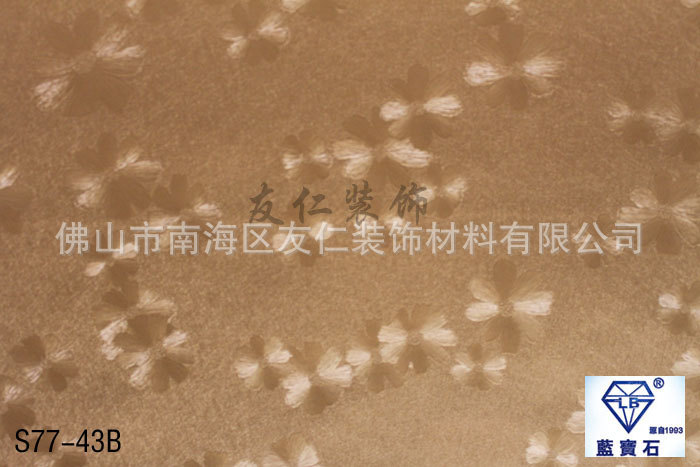 友仁装饰
佛山市南海区友仁装饰材料有限公司
LB®
源自1993
藍寶石
S77-43B